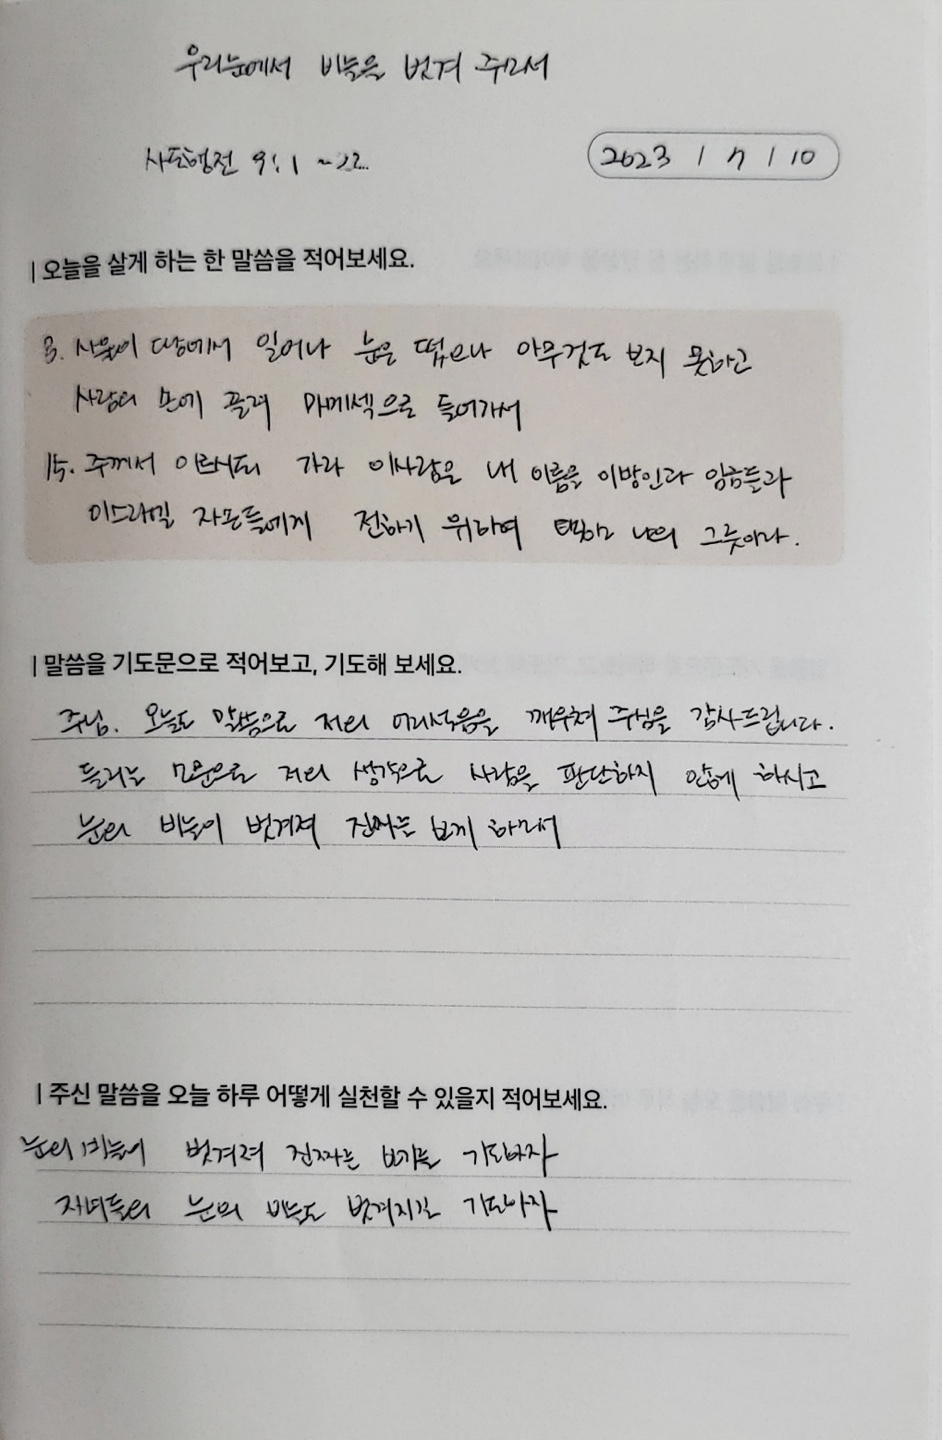 우리눈에서 비늘을 벗겨 주소서
사도행전 9:1 ~22
2023 / 7 / 10
| 오늘을 살게 하는 한 말씀을 적어보세요.
8. 사울이 땅에서 일어나 눈은 떴으나 아무것도 보지 못하고
사람의 손에 끌려 다메섹으로 들어가서
15. 주께서 이르시되 가라 이사람은 내 이름을 이방인과 임금들과
이스라엘 자손들에게 전하기 위하여 택한 나의 그릇이라.
| 말씀을 기도문으로 적어보고, 기도해 보세요.
주님. 오늘도 말씀으로 저의 어리석음을 깨우쳐 주심을 감사드립니다.
들리는 소문으로 저의 생각으로 사람을 판단하지 않게 하시고
눈의 비늘이 벗겨져 진짜를 보게 하소서
| 주신 말씀을 오늘 하루 어떻게 실천할 수 있을지 적어보세요.
눈의 비늘이 벗겨져 진짜를 보기를 기도하자
자녀들의 눈의 비늘도 벗겨지길 기도하자